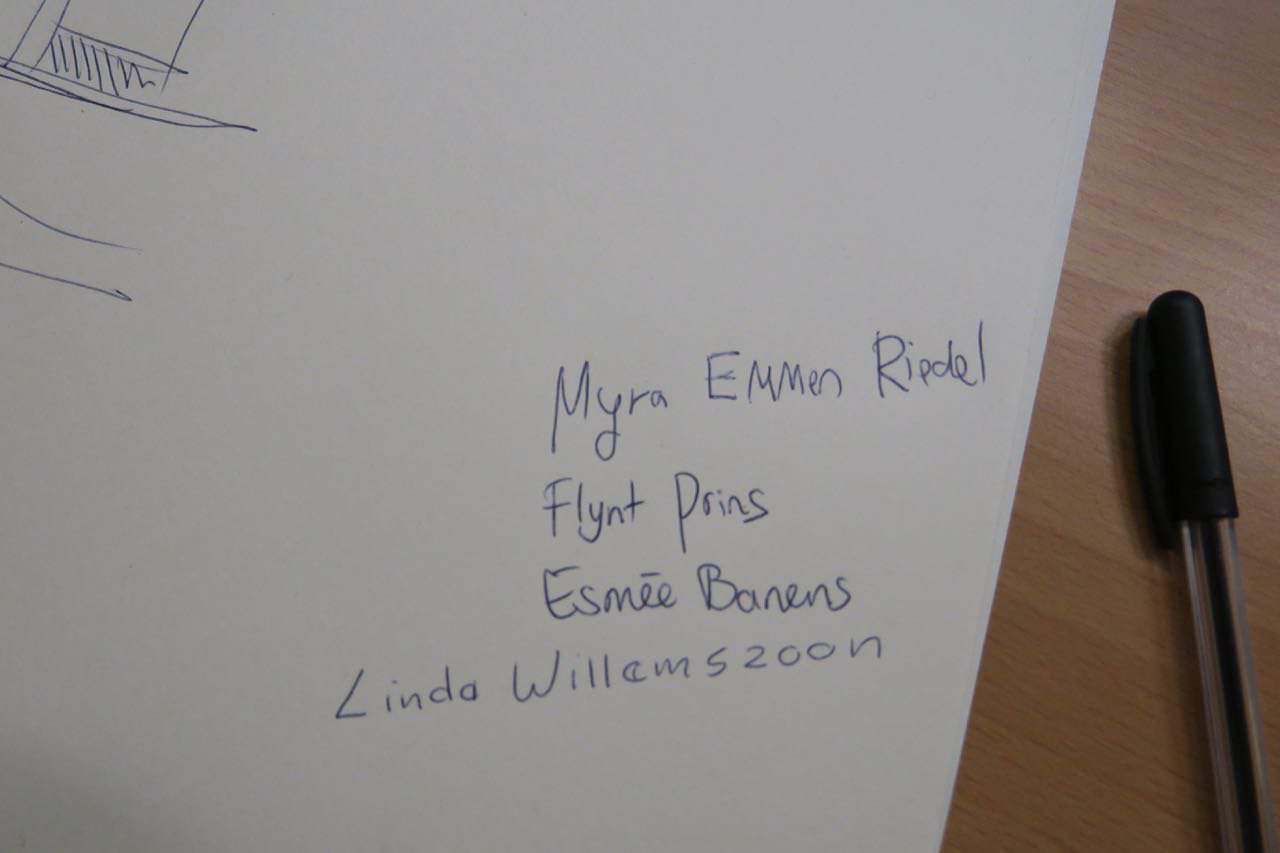 Myra Emmen Riedel
Flynt Prins
Esmēe Banens
Linda Willemszoon